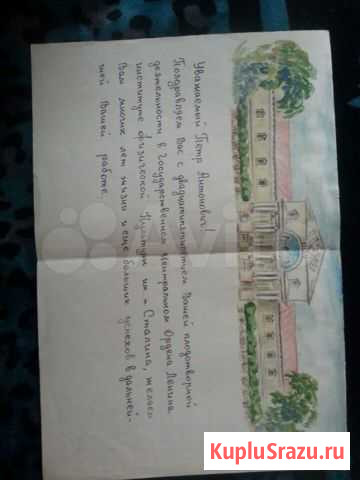 Уважаемый Петр Антонович!
Поздравляем Вас с двадцатипятилетием Вашей плодотворной
деятельности в Государственном Центральном Ордена Ленина
институте физической Культуры им. т. Сталина, желаем
Вам многих лет жизни и еще больших успехов в дальней-
шей Вашей работе.
Avito
KupluSrazu.ru